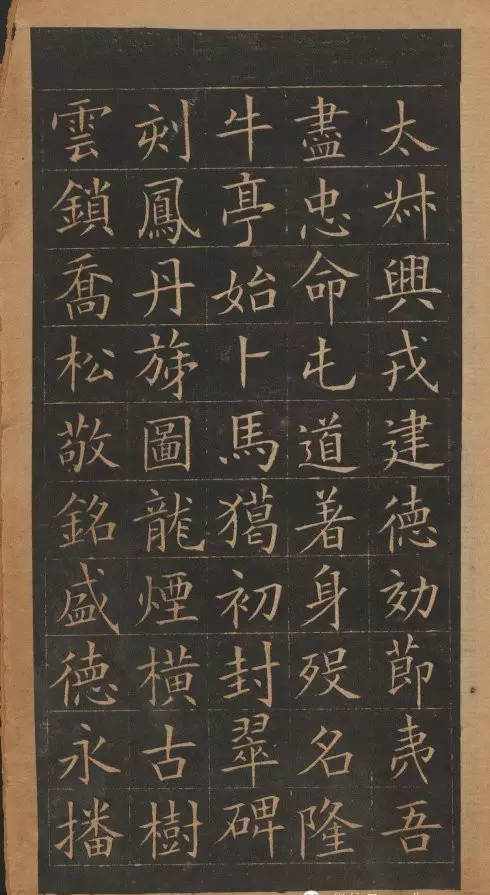 太叔興戎建德効節夷吾
盡忠命屯道著身殁名隆
牛亭始卜馬獦初封翠碑
刻鳳丹旐圖龍煙橫古樹
雲鎖喬松敬銘盛德永播